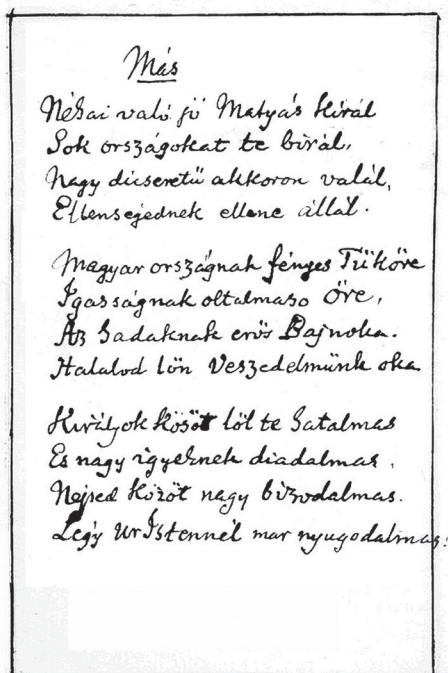 Más
Néhai való jó Matyás Királ
Sok országokat te birál,
Nagy dicseretü akkoron valál,
Ellensegednek ellene állál.
Magyar országnak fényes Tüköre
Igasságnak oltalmaso Öre,
Az hadaknak erös Bajnoka.
Halalod lön Veszedelmünk oka
Királyok Közöt löl te hatalmas
Es nagy igyeknek diadalmas,
Neped Közöt nagy bizodalmas.
Légy Ur Istennél mar nyugodalmas.